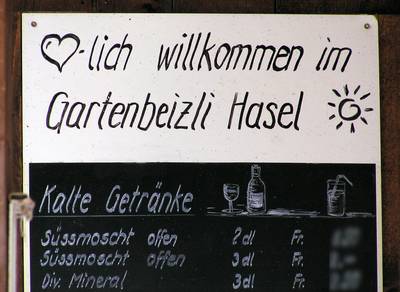 ♡-lich willkommen im
Gartenbeizli Hasel
Kalte Getränke
Süssmoscht offen 2dl Fr.
Süssmoscht offen 3dl Fr.
Div. Mineral 3dl Fr.